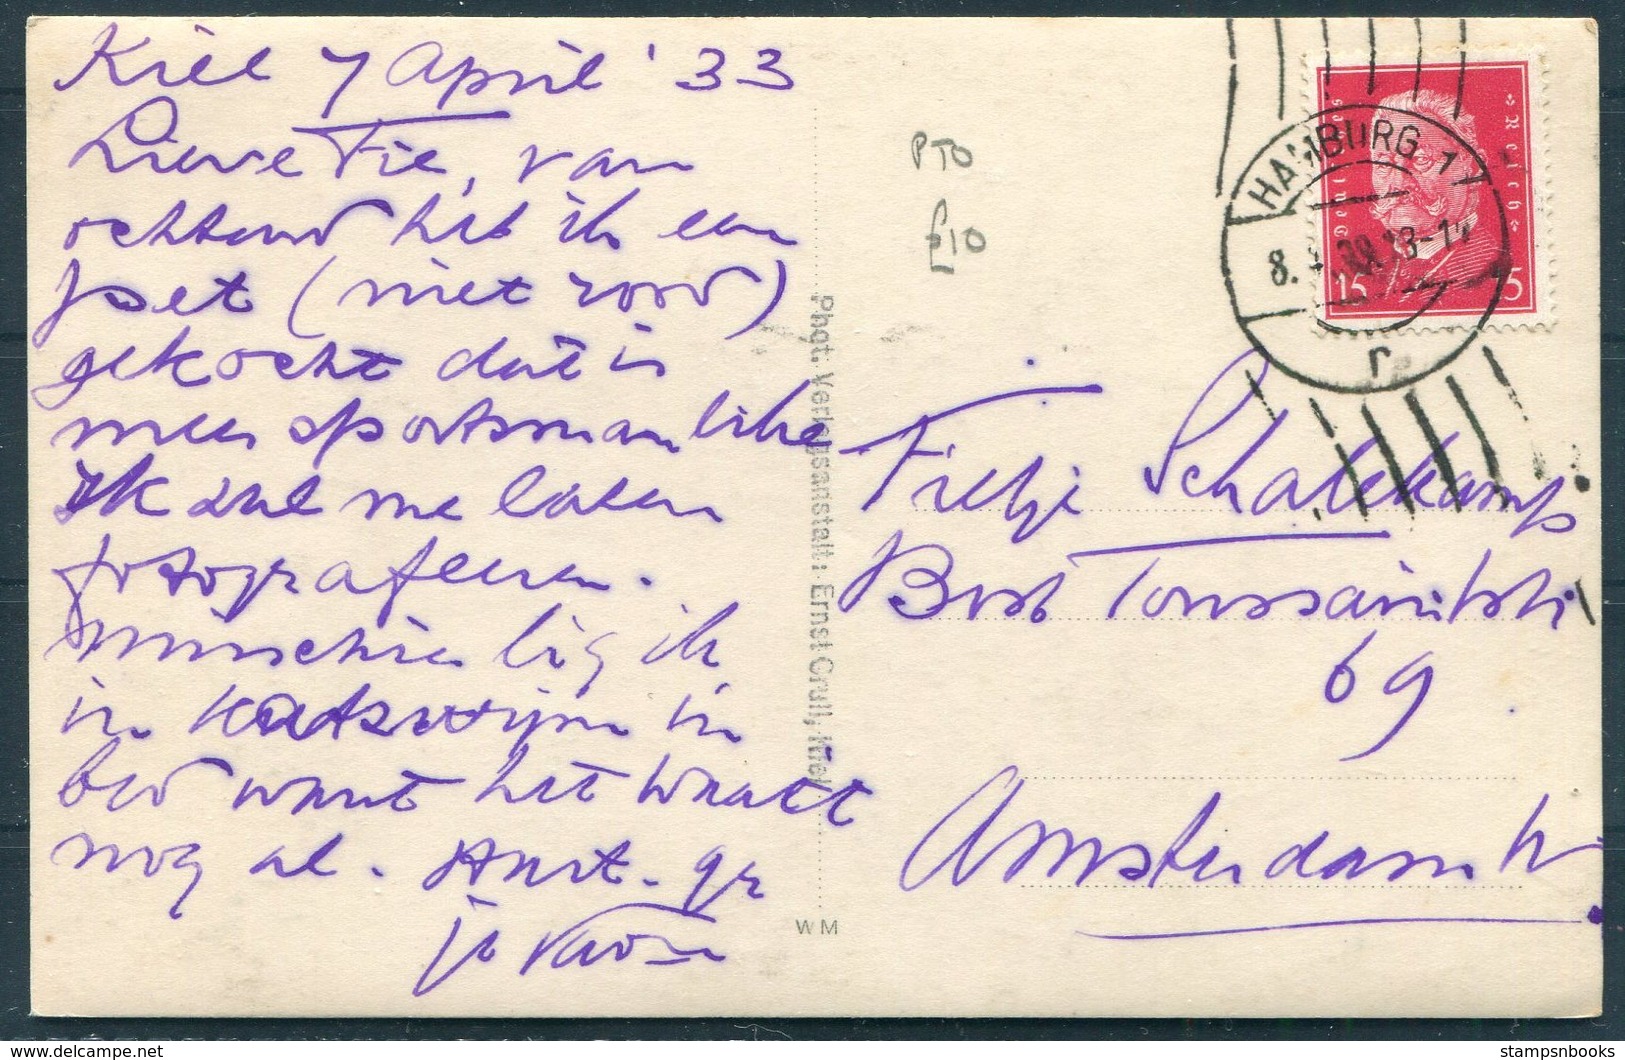 Kiel 7 April '33
Lieve Fie, van
ochtend heb ik een
pet (niet rood)
gekocht dat is
meer sportsmanlike
ik zal me laten
fotografeeren.
misschien lig ik
in Katswijm in
bed want het waait
nog al. Hart. gr
je Vader
PTO
£10
Phot. Verlagsanstalt: Ernst Crull, Kiel
WM
HAMBURG 1
8. 4. 33. 13-14
r
Deutsches Reich
15 15
Fietje Schalekamp
Bosb Toussaintstr
69
Amsterdam W
stampsnbooks